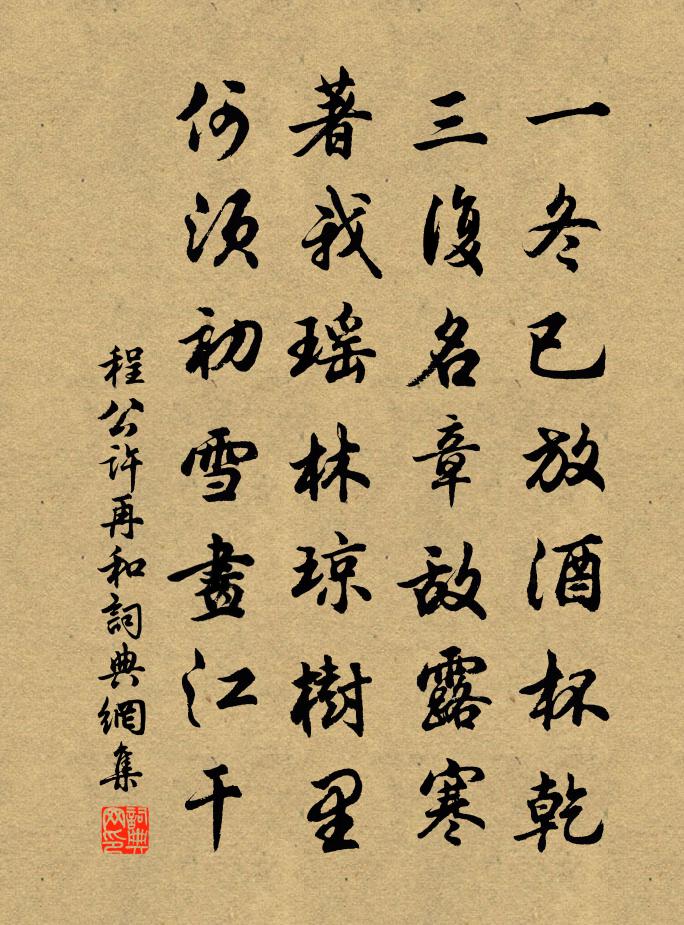 一冬已放酒杯乾
三復名章敵露寒
著我瑶林琼樹里
何須初雪畫江干
程公许再和詞典網集
詞典网印